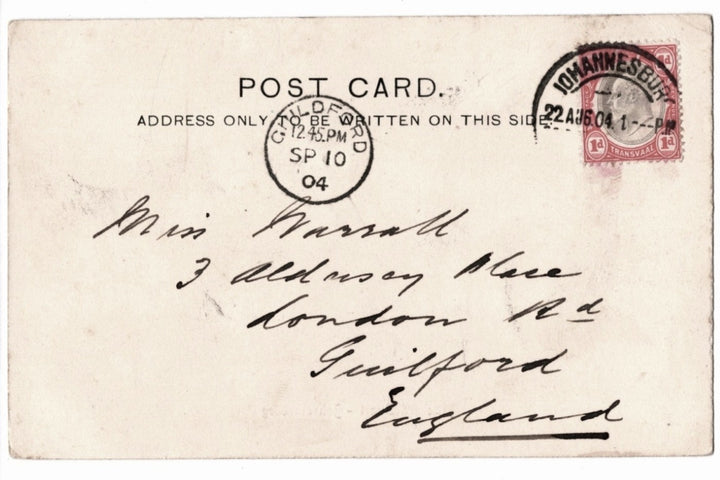 POST CARD.
ADDRESS ONLY TO BE WRITTEN ON THIS SIDE.
JOHANNESBUR
22 AUG 04 1 -PM
1d 1d
TRANSVAAL
GUILDFORD
12.45PM
SP 10
04
Miss Warrall
3 Place
London Rd
Guilford
England